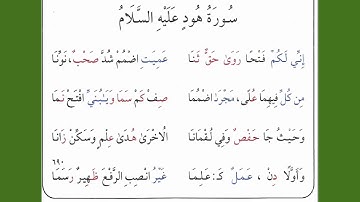 سُورَةُ هُودٍ عَلَيْهِ السَّلَامُ
إِنِّي لَكُمْ فَتْحًا رَوَىٰ حَقٌّ ثَنَا عَمِيَتِ اضْمُمْ شُدَّ صَحْبٌ، نَوِّنَا
مِن كُلِّ فِيهِمَا عُلًى، مَجْرَىٰ اضْمُمَا صِفْ كَمْ سَمَا وَيَا بُنَيِّ افْتَحْ نَمَا
وَحَيْثُ جَا حَفْصٌ وَفِي لُقْمَانَا الْاُخْرَىٰ هُدَىٰ عِلْمٍ وَسَكِّنْ زَانَا
وَأَوَّلًا دِنْ ، عَمَلٌ كَـ: عَلِمَا غَيْرُ انْصِبِ الرَّفْعَ ظَهِيرٌ رَسَمَا ٦٩٠